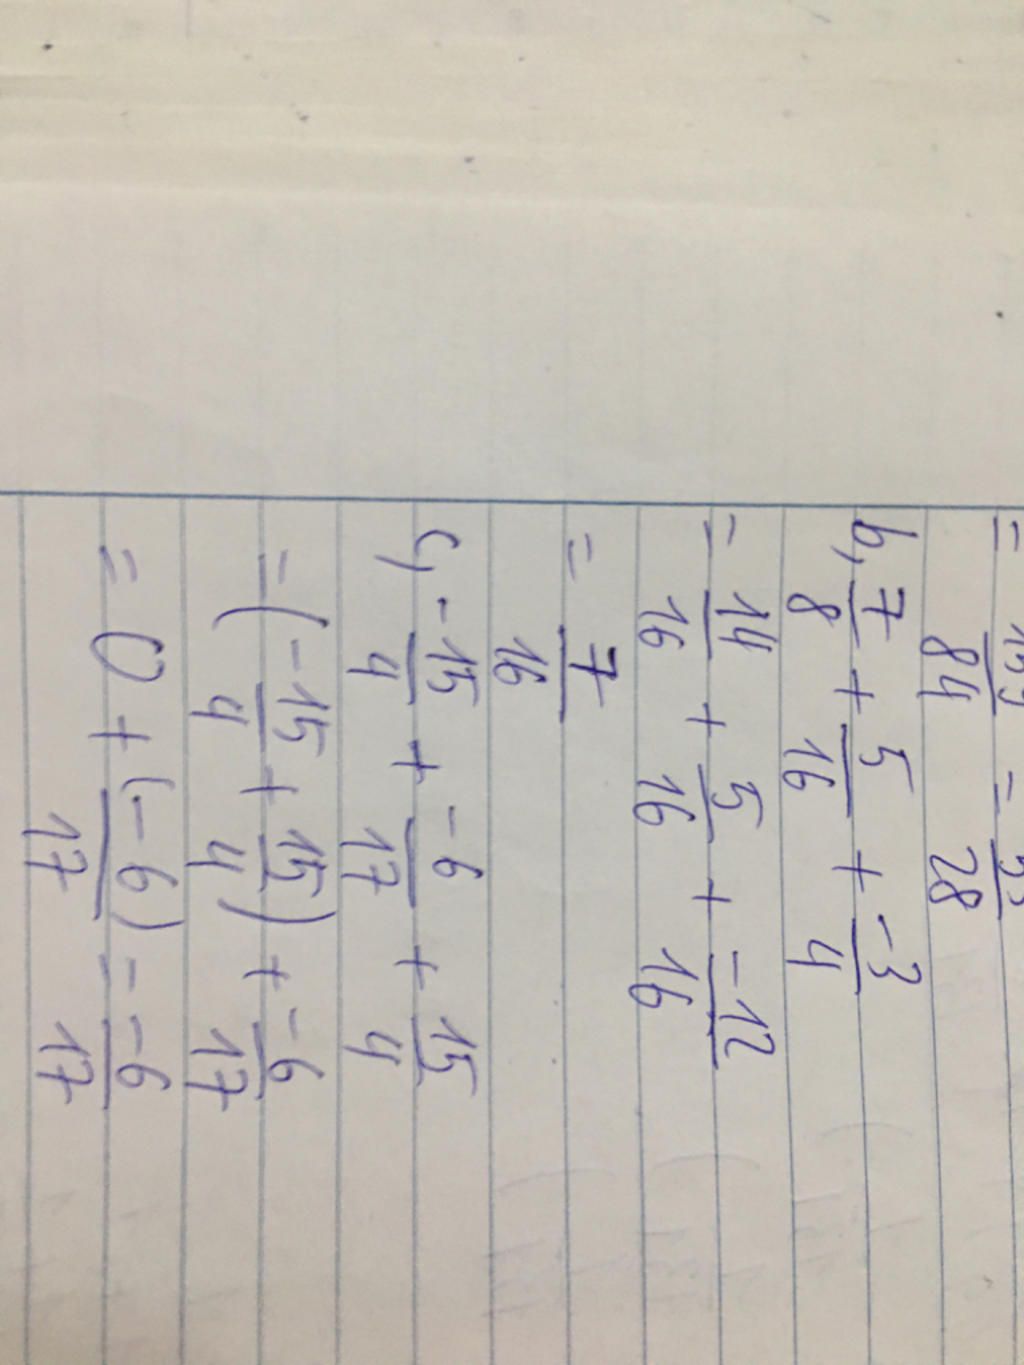 = /84 = /28
b, 7/8 + 5/16 + -3/4
= 14/16 + 5/16 + -12/16
= 7/16
c, -15/4 + -6/17 + 15/4
= (-15/4 + 15/4) + -6/17
= 0 + (-6)/17 = -6/17